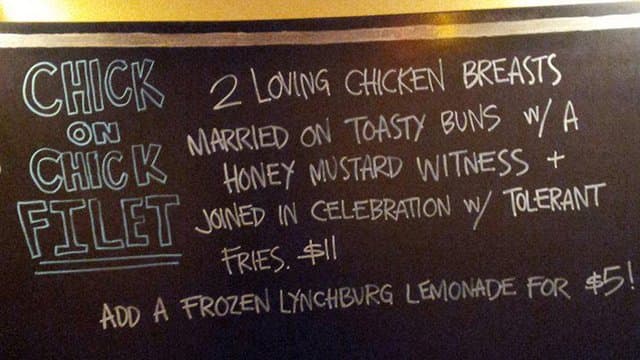 CHICK
ON
CHICK
FILET
2 LOVING CHICKEN BREASTS
MARRIED ON TOASTY BUNS W/ A
HONEY MUSTARD WITNESS +
JOINED IN CELEBRATION W/ TOLERANT
FRIES. $11
ADD A FROZEN LYNCHBURG LEMONADE FOR $5!